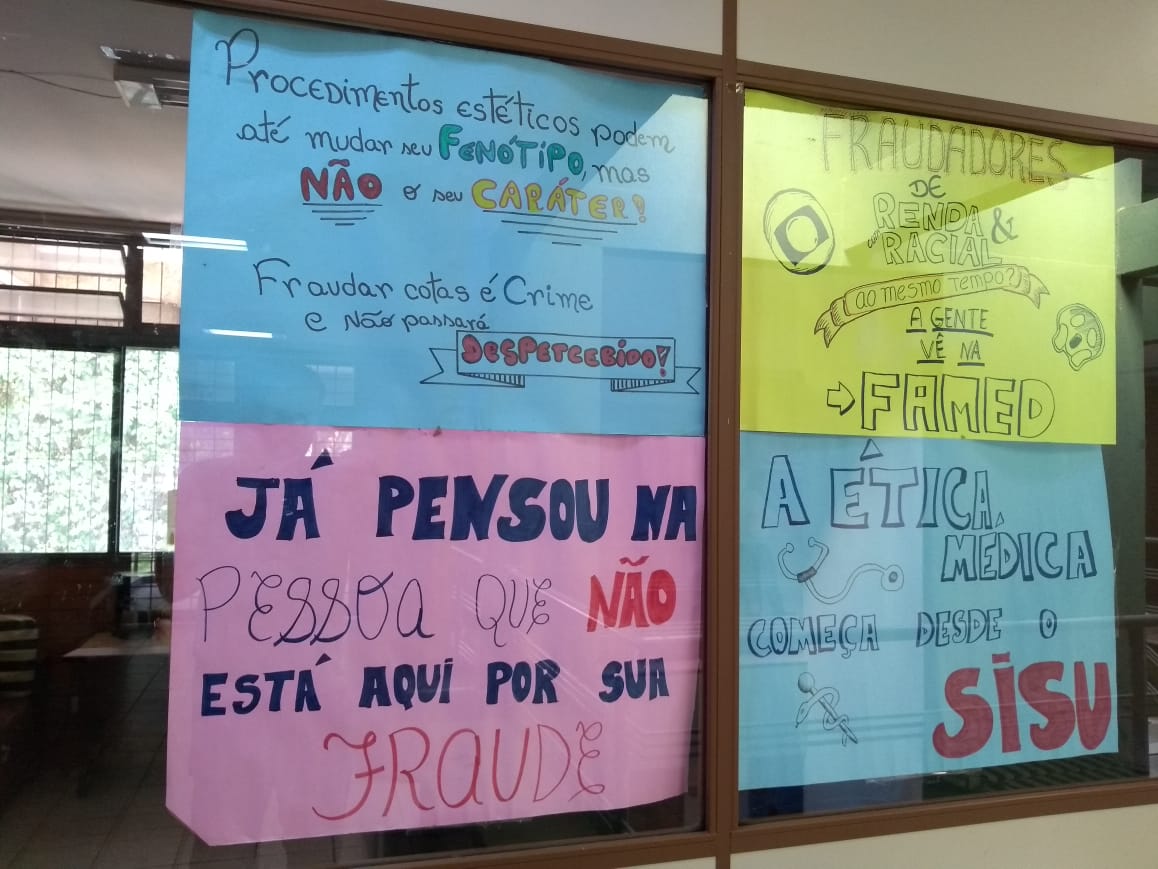 Procedimentos estéticos podem
até mudar seu FENÓTIPO, mas
NÃO o seu CARÁTER!
Fraudar cotas é Crime
e Não passará
DESPERCEBIDO!
JÁ PENSOU NA
PESSOA QUE NÃO
ESTÁ AQUI POR SUA
FRAUDE
FRAUDADORES
DE
RENDA &
RACIAL
ao mesmo tempo?
A GENTE
VÊ NA
FAMED
A ÉTICA
MÉDICA
COMEÇA DESDE O
SISU